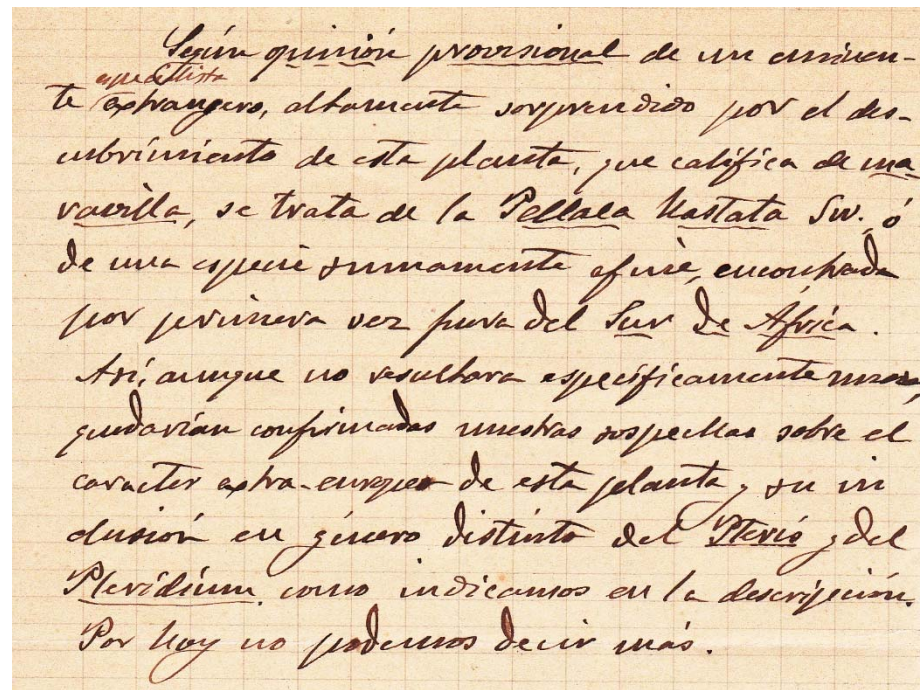 Según opinión provisional de un eminen-
especialista
te extrangero, altamente sorprendido por el des-
cubrimiento de esta planta, que califica de ma
ravilla, se trata de la Pellaea Hastata Sw. ó
de una especie sumamente afine, encontrada
por primera vez fuera del Sur de África.
Así, aunque no resultara específicamente nueva,
quedarían confirmadas nuestras sospechas sobre el
carácter extra-europeo de esta planta y su in
clusión en género distinto del Pteris y del
Pteridium, como indicamos en la descripción.
Por hoy no podemos decir más.